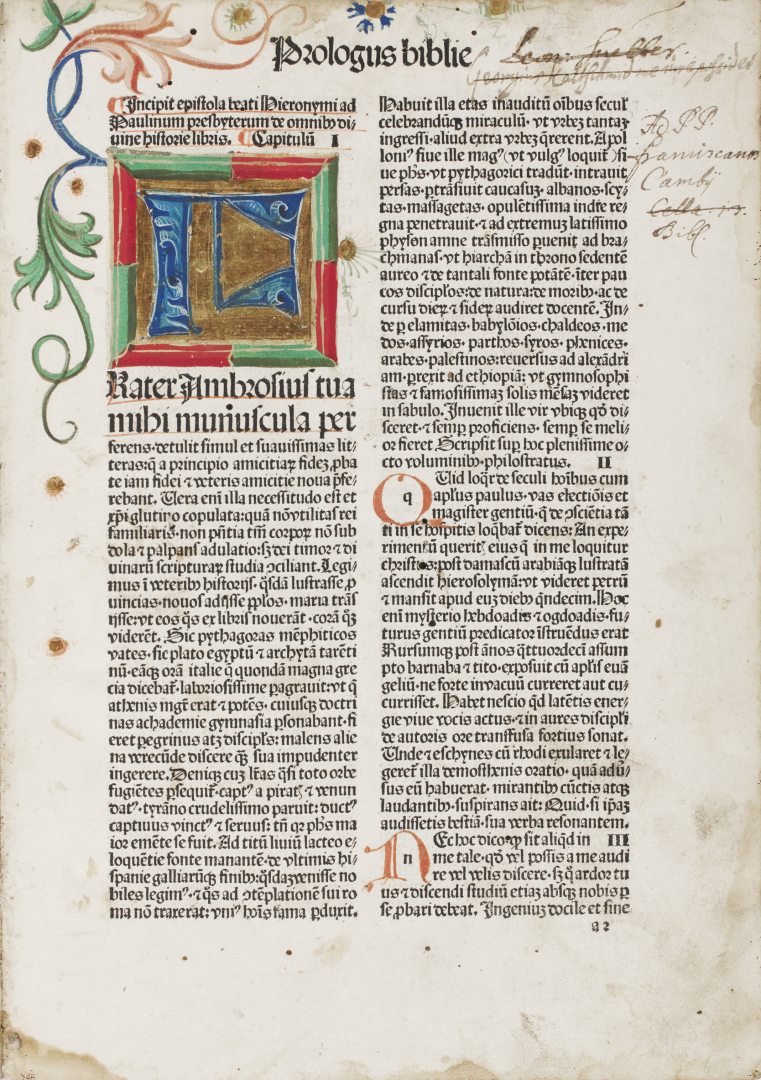 Prologus biblie
Leon: Huebler.
Ad P.P.
franciscanos
Camby
Cella 13.
Bibl.
Incipit epistola beati Hieronymi ad
Paulinum presbyterum de omnibꝰ di⸗
uine historie libris. Capitulū I
F
Rater Ambrosius tua
mihi muñuscula per
ferens·detulit simul et suauissimas lit⸗
teras:q̄ a principio amicitiaꝝ fideʒ ,pba
te iam fidei ⁊ veteris amicitie noua p̄fe⸗
rebant. Uera eni illa necessitudo est et
xp̄i glutino copulata:quā nōvtilitas rei
familiaris·non pn̄tia tm̄ corpoꝝ nō sub
dola ⁊ palpans adulatio:sʒ dei timor ⁊ di
uinaꝝ scripturaꝝ studia ɔciliant. Legi⸗
mus ī veteribꝰ historijs· q̄sdā lustrasse ꝓ
uincias·nouos adijsse ppl̄os· maria trās
ijsse:vt eos q̄s ex libris nouerāt· corā qʒ
viderēt. Sic pythagoras mēphiticos
vates· sic plato egyptū ⁊ archytā tarēti
nū·eāqʒ orā italie q̄ quondā magna gre
cia dicebaꝉ·laboriosissime ꝑagrauit:vt q̇
athenis mgr̄ erat ⁊ potēs· cuiusqʒ doctri
nas achademie gymnasia ꝑsonabant·fi
eret ꝑegrinus atqʒ discipl̄s: malens alie
na verecūde discere qʒ sua impudenter
ingerere. Deniqʒ cuʒ lr̄as q̄si toto orbe
fugiētes ꝑsequiꝉ·captꝰ a piratꝭ ⁊ venun
datꝰ·tyrāno crudelissimo paruit: ductꝰ
captiuus vinctꝰ ⁊ seruus: tn̄ qꝛ ph̄s ma
ior emēte se fuit. Ad titū liuiū lacteo e⸗
loquētie fonte manantē·de vltimis hi⸗
spanie galliarūqʒ finibꝰ·q̄sdaʒvenisse no
biles legimꝰ· ⁊ q̄s ad ɔtēplationē sui ro
ma nō traxerat: vniꝰ hoīs fama ꝑduxit.
Habuit illa etas inauditū oībus seculꝭ
celebrandūqʒ miraculū· vt vrbeʒ tantaʒ
ingressi·aliud extra vrbeʒ q̄rerent. Apol
loniꝰ siue ille magꝰ (vt vulgꝰ loquiꝉ) si
ue ph̄s·vt pythagorici tradūt·intrauit
persas·ꝑtrāsiuit caucasuʒ· albanos·scy⸗
tas·massagetas· opulētissima indie re⸗
gna penetrauit·⁊ ad extremuʒ latissimo
physon amne trāsmisso ꝑuenit ad bra⸗
chmanas·vt hiarchā in throno sedentē
aureo ⁊ de tantali fonte potātē·īter pau
cos discipl̄os:de natura:de moribꝰ·ac de
cursu dieꝝ ⁊ sideꝝ audiret docentē. In⸗
de ꝑ elamitas·babylōios·chaldeos·me
dos·assyrios· parthos·syros·phenices·
arabes·palestinos:reuersus ad alexādri
am·ꝑrexit ad ethiopiā: vt gymnosophi
stas ⁊ famosissimaʒ solis mēsaʒ videret
in sabulo. Inuenit ille vir vbiqʒ qd̄ di⸗
sceret·⁊ semꝑ proficiens· semꝑ se meli⸗
or fieret. Scripsit suꝑ hoc plenissime o⸗
cto voluminibꝰ·philostratus. II
q
Uid loqr̄ de seculi hoībus cum
apl̄us paulus·vas electiōis et
magister gentiū·q̇ de ɔsciētia tā
ti in se hospitis loqbaꝉ dicens: An expe⸗
rimentū queritꝭ eius q̇ in me loquitur
christus:post damascū arabiāqʒ lustratā
ascendit hierosolymā:vt videret petrū
⁊ mansit apud euʒ diebꝰ q̇ndecim. Hoc
eni mysterio hebdoadis ⁊ ogdoadis·fu⸗
turus gentiū predicator īstruēdus erat
Rursumqʒ post ānos q̄ttuordeci assum
pto barnaba ⁊ tito·exposuit cū apl̄is euā
geliū·ne forte invacuū curreret aut cu⸗
currisset. Habet nescio qd̄ latētis ener⸗
gie viue vocis actus·⁊ in aures discipl̄i
de autoris ore transfusa fortius sonat.
Unde ⁊ eschynes cū rhodi exularet ⁊ le⸗
gereꝉ illa demosthenis oratio· quā aduꝭ⸗
sus eū habuerat· mirantibꝰ cūctis atqʒ
laudantibꝰ·suspirans ait: Quid·si ip̄aʒ
audissetis bestiā·sua verba resonantem.
n
Ec hoc dico·ꝙ sit aliqd in III
me tale· qd̄ vel possis a me audi
re vel velis discere·sʒ q̇ ardor tu
us ⁊ discendi studiū etiaʒ absqʒ nobis ꝑ
se ,pbari debeat. Ingeniuʒ docile et sine
a 2